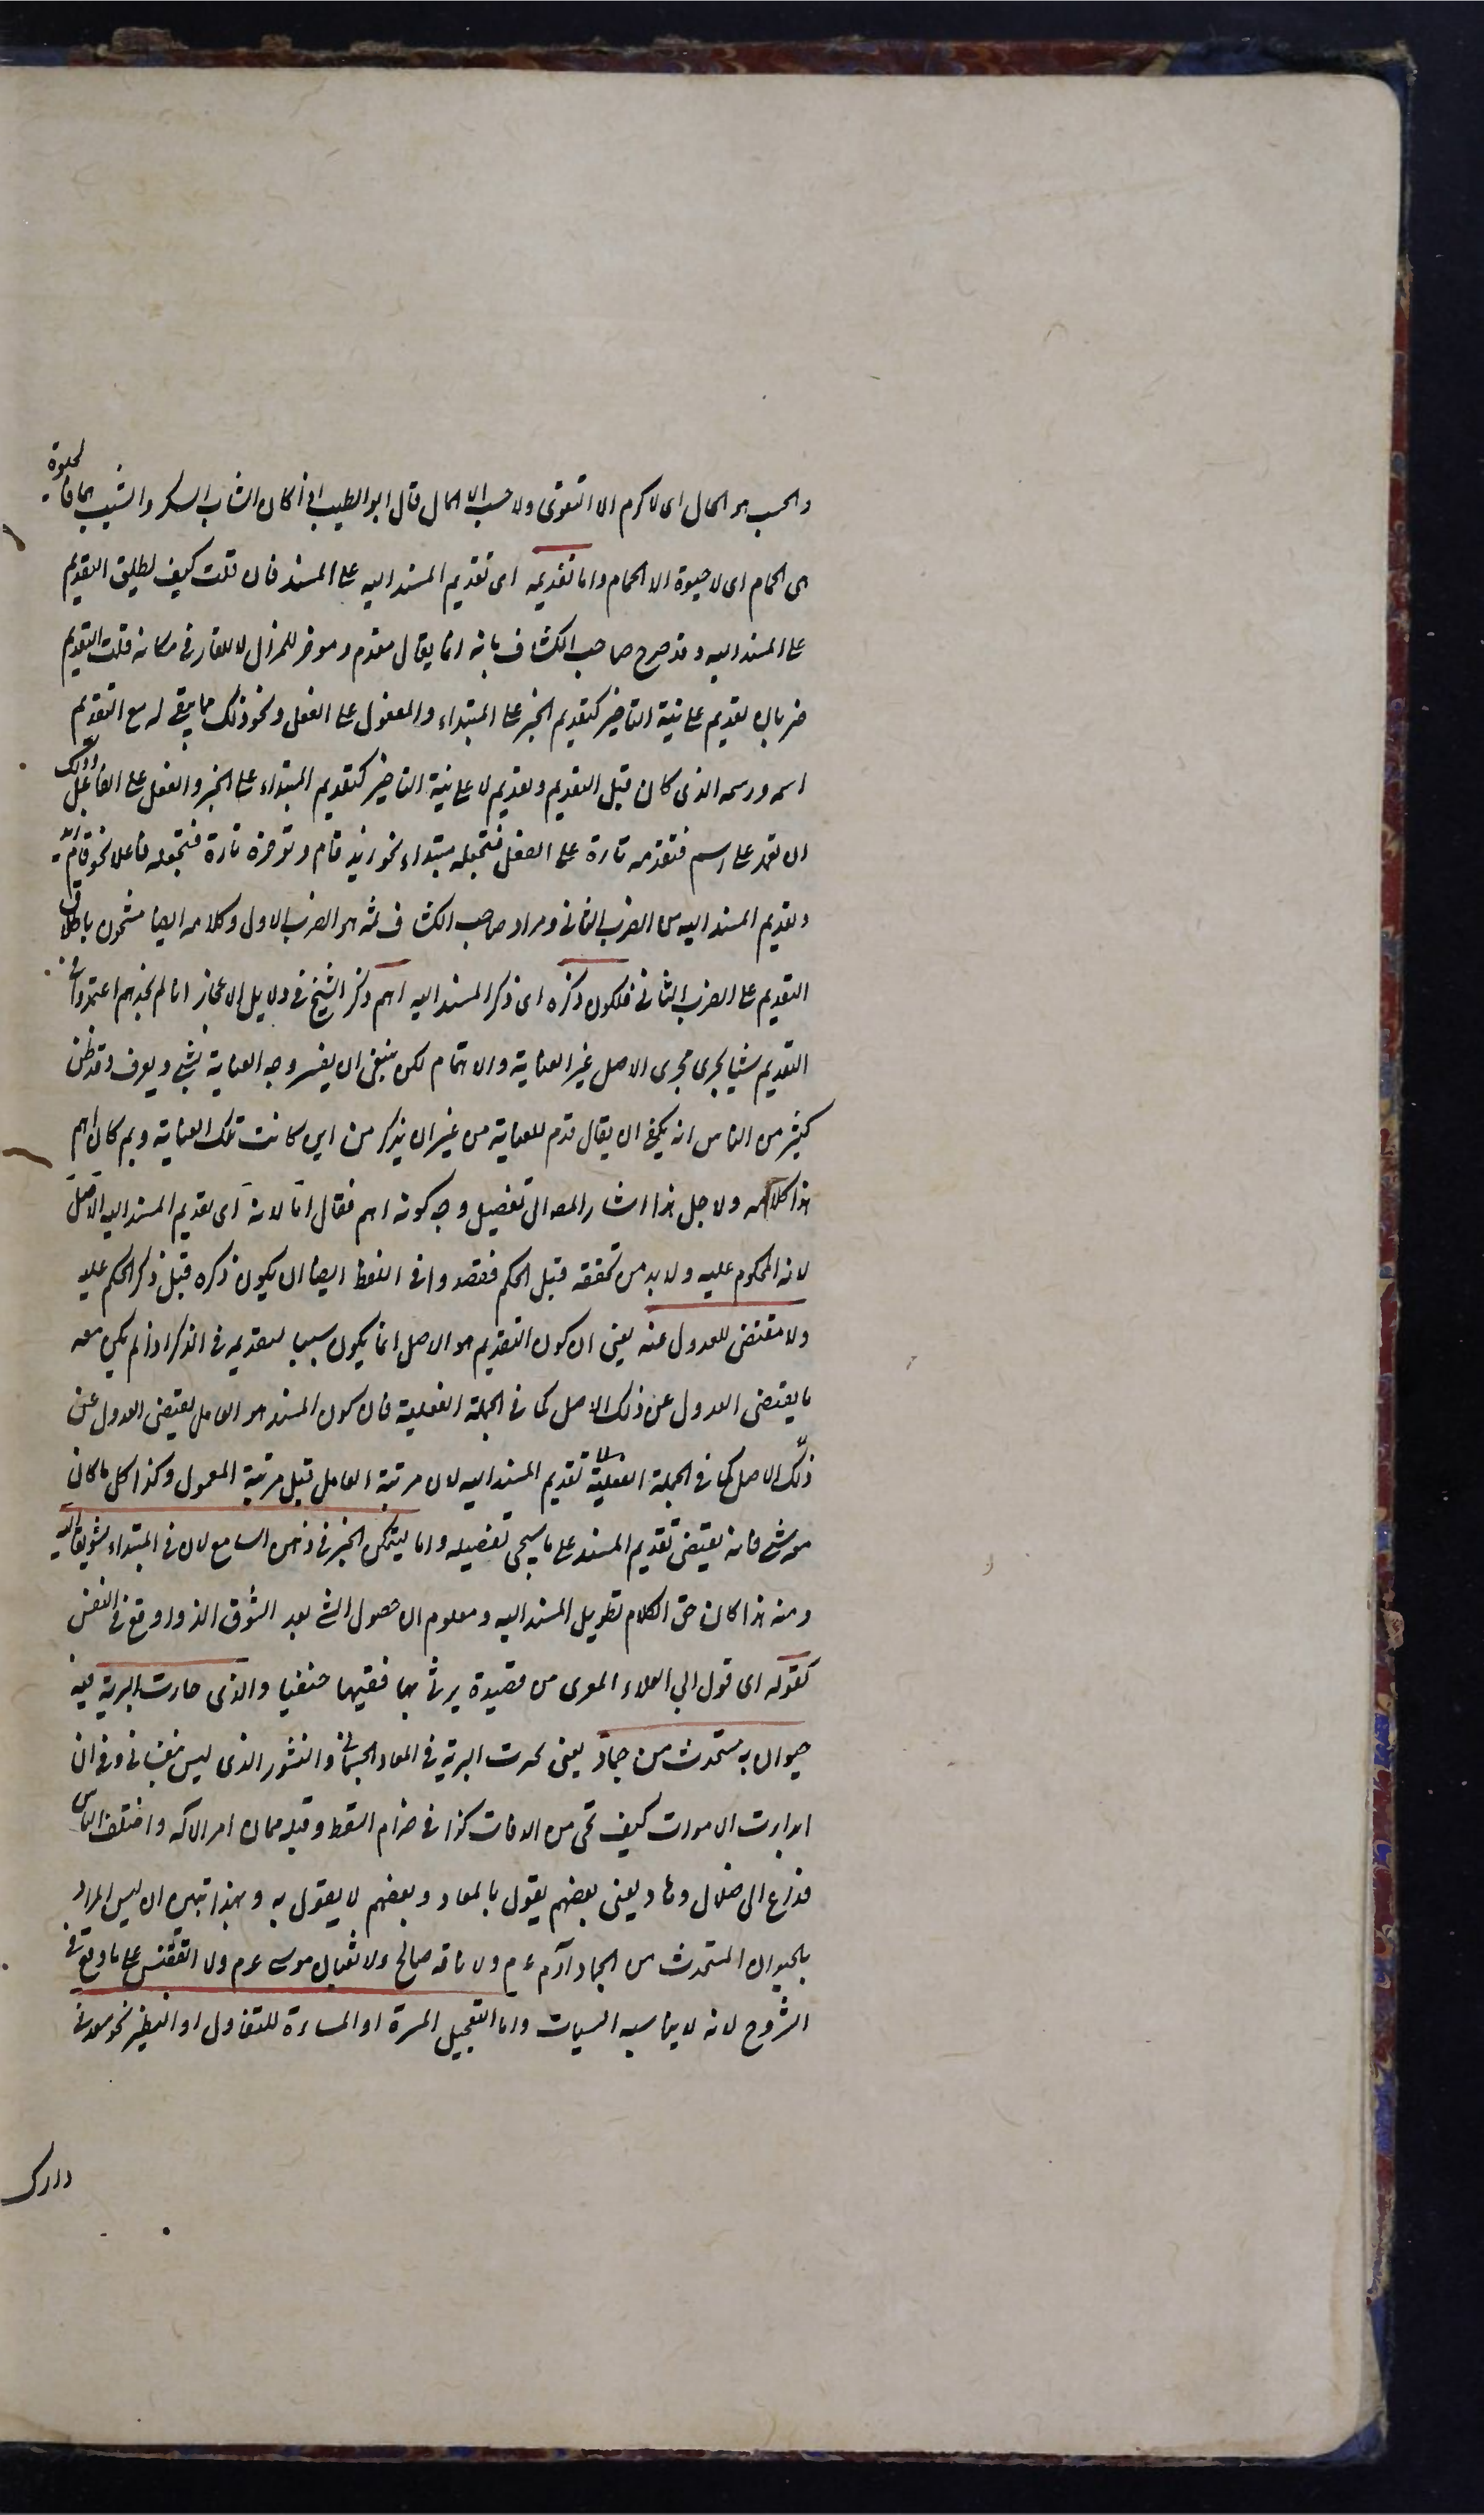 والحسب هو المال اى لا كرم الا التقوى ولا حسب الا المال قال ابو الطيب اذا كان الشباب السكر والشيب هما فالحيوة
هى الحمام اى لا حيوة الا الحمام واما تقديمه اى تقديم المسند اليه على المسند فان قلت كيف يطلق التقديم
على المسند اليه وقد صرح صاحب الكشاف بانه انما يقال مقدم ومؤخر للمزال لا للقار فى مكانه قلت التقديم
ضربان تقديم على نية التاخير كتقديم الخبر على المبتداء والمفعول على الفعل ونحو ذلك مما يبقى له مع التقديم
اسمه ورسمه الذى كان قبل التقديم وتقديم لا على نية التاخير كتقديم المبتداء على الخبر والفعل على الفاعل وذلك
ان تعمد على اسم فتقدمه تارة على الفعل فتجعله مبتداء نحو زيد قام وتؤخره تارة فتجعله فاعلا نحو قام زيد
وتقديم المسند اليه من الضرب الثانى ومراد صاحب الكشاف ثمه هو الضرب الاول وكلامه ايضا مشحون باطلاق
التقديم على الضرب الثانى فلكون ذكره اى ذكر المسند اليه اهم ذكر الشيخ فى دلايل الاعجاز انا لم نجدهم اعتمدوا فى
التقديم شيا يجرى مجرى الاصل غير العناية والاهتمام لكن ينبغى ان يفسر وجه العناية بشئ ويعرف وقد ظن
كثير من الناس انه يكفى ان يقال قدم للعناية من غير ان يذكر من اين كانت تلك العناية وبم كان اهم
هذا كلامه ولاجل هذا اشار المص الى تفصيل وجه كونه اهم فقال اما لانه اى تقديم المسند اليه الاصل
لانه المحكوم عليه ولا بد من تحققه قبل الحكم فقصدوا فى اللفظ ايضا ان يكون ذكره قبل ذكر الحكم عليه
ولا مقتضى للعدول عنه يعنى ان كون التقديم هو الاصل انما يكون سببا لتقديمه فى الذكر اذا لم يكن معه
ما يقتضى العدول عن ذلك الاصل كما فى الجملة الفعلية فان كون المسند هو العامل يقتضى العدول عن
ذلك الاصل كما فى الجملة الفعلية تقديم المسند اليه لان مرتبة العامل قبل مرتبة المعمول وكذا كل ما كان
معه شئ فانه يقتضى تقديم المسند على ما سيجئ تفصيله واما ليتمكن الخبر فى ذهن السامع لان فى المبتداء تشويقا اليه
ومنه هذا كان حق الكلام تطويل المسند اليه ومعلوم ان حصول الشئ بعد الشوق الذ واوقع فى النفس
كقوله اى قول ابى العلاء المعرى من قصيدة يرثى بها فقيها حنفيا والذى حارت البرية فيه
حيوان مستحدث من جماد يعنى تحيرت البرية فى المعاد الجسمانى والنشور الذى ليس بنفسانى وفى ان
ابدان الاموات كيف تحى من الرفات كذا فى ضرام السقط وقبله بان امر الاله واختلف الناس
فداع الى ضلال وهاد يعنى بعضهم يقول بالمعاد وبعضهم لا يقول به وبهذا تبين ان ليس المراد
بالحيوان المستحدث من الجماد آدم ءم ولا ناقة صالح ولا ثعبان موسى عم ولا القفنس على ما وقع فى
الشروح لانه لا يناسبه السياق واما لتعجيل المسرة او المساءة للتفاول او التطير نحو سعد فى
دارك